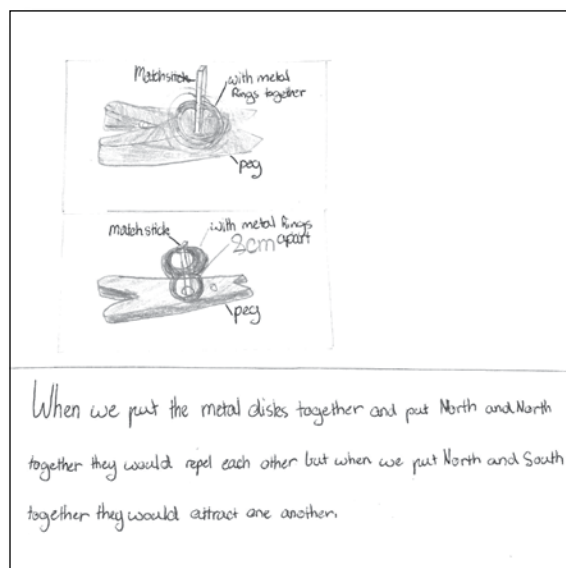 Matchstick
with metal
Rings together
peg
matchstick
with metal Rings
2cm apart
peg
When we put the metal disks together and put North and North
together they would repel each other but when we put North and South
together they would attract one another.